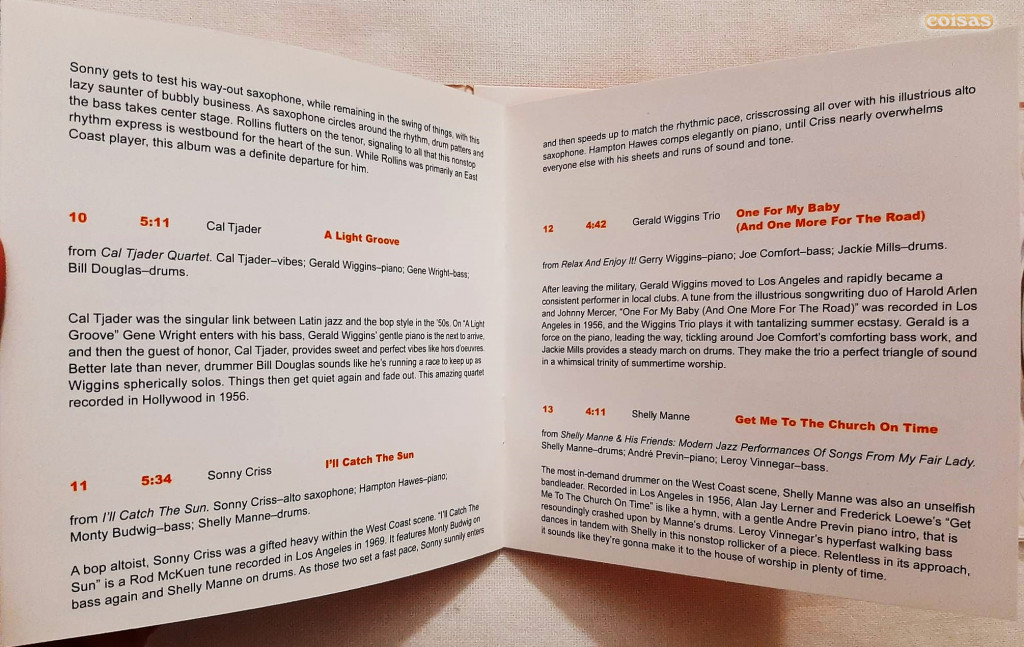 coisas
Sonny gets to test his way-out saxophone, while remaining in the swing of things, with this
lazy saunter of bubbly business. As saxophone circles around the rhythm, drum patters and
the bass takes center stage. Rollins flutters on the tenor, signaling to all that this nonstop
rhythm express is westbound for the heart of the sun. While Rollins was primarily an East
Coast player, this album was a definite departure for him.
10 5:11 Cal Tjader A Light Groove
from Cal Tjader Quartet. Cal Tjader–vibes; Gerald Wiggins–piano; Gene Wright–bass;
Bill Douglas–drums.
Cal Tjader was the singular link between Latin jazz and the bop style in the '50s. On “A Light
Groove” Gene Wright enters with his bass, Gerald Wiggins' gentle piano is the next to arrive,
and then the guest of honor, Cal Tjader, provides sweet and perfect vibes like hors d'oeuvres.
Better late than never, drummer Bill Douglas sounds like he's running a race to keep up as
Wiggins spherically solos. Things then get quiet again and fade out. This amazing quartet
recorded in Hollywood in 1956.
11 5:34 Sonny Criss I'll Catch The Sun
from I'll Catch The Sun. Sonny Criss–alto saxophone; Hampton Hawes–piano;
Monty Budwig–bass; Shelly Manne–drums.
A bop altoist, Sonny Criss was a gifted heavy within the West Coast scene. “I'll Catch The
Sun” is a Rod McKuen tune recorded in Los Angeles in 1969. It features Monty Budwig on
bass again and Shelly Manne on drums. As those two set a fast pace, Sonny sunnily enters
and then speeds up to match the rhythmic pace, crisscrossing all over with his illustrious alto
saxophone. Hampton Hawes comps elegantly on piano, until Criss nearly overwhelms
everyone else with his sheets and runs of sound and tone.
12 4:42 Gerald Wiggins Trio One For My Baby
(And One More For The Road)
from Relax And Enjoy It! Gerry Wiggins–piano; Joe Comfort–bass; Jackie Mills–drums.
After leaving the military, Gerald Wiggins moved to Los Angeles and rapidly became a
consistent performer in local clubs. A tune from the illustrious songwriting duo of Harold Arlen
and Johnny Mercer, “One For My Baby (And One More For The Road)” was recorded in Los
Angeles in 1956, and the Wiggins Trio plays it with tantalizing summer ecstasy. Gerald is a
force on the piano, leading the way, tickling around Joe Comfort's comforting bass work, and
Jackie Mills provides a steady march on drums. They make the trio a perfect triangle of sound
in a whimsical trinity of summertime worship.
13 4:11 Shelly Manne Get Me To The Church On Time
from Shelly Manne & His Friends: Modern Jazz Performances Of Songs From My Fair Lady.
Shelly Manne–drums; André Previn–piano; Leroy Vinnegar–bass.
The most in-demand drummer on the West Coast scene, Shelly Manne was also an unselfish
bandleader. Recorded in Los Angeles in 1956, Alan Jay Lerner and Frederick Loewe's “Get
Me To The Church On Time” is like a hymn, with a gentle Andre Previn piano intro, that is
resoundingly crashed upon by Manne's drums. Leroy Vinnegar's hyperfast walking bass
dances in tandem with Shelly in this nonstop rollicker of a piece. Relentless in its approach,
it sounds like they're gonna make it to the house of worship in plenty of time.